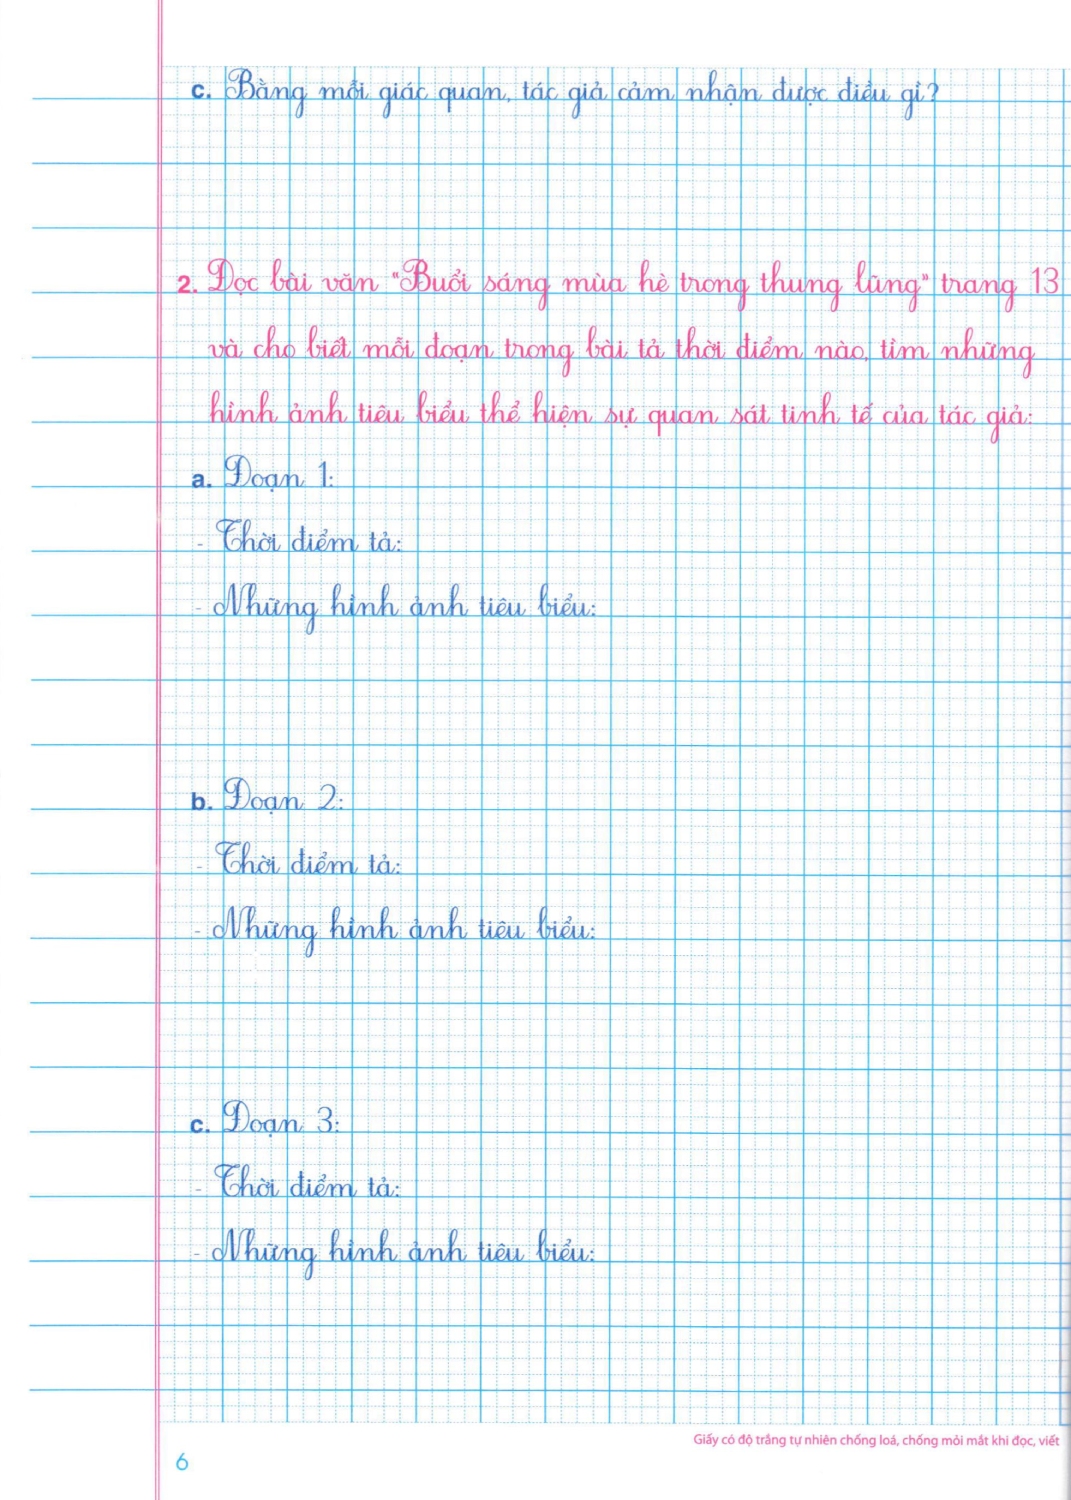 c. Bằng mỗi giác quan, tác giả cảm nhận được điều gì?
2. Đọc bài văn "Buổi sáng mùa hè trong thung lũng" trang 13
và cho biết mỗi đoạn trong bài tả thời điểm nào, tìm những
hình ảnh tiêu biểu thể hiện sự quan sát tinh tế của tác giả:
a. Đoạn 1:
- Thời điểm tả:
- Những hình ảnh tiêu biểu:
b. Đoạn 2:
- Thời điểm tả:
- Những hình ảnh tiêu biểu:
c. Đoạn 3:
- Thời điểm tả:
- Những hình ảnh tiêu biểu:
Giấy có độ trắng tự nhiên chống loá, chống mỏi mắt khi đọc, viết
6